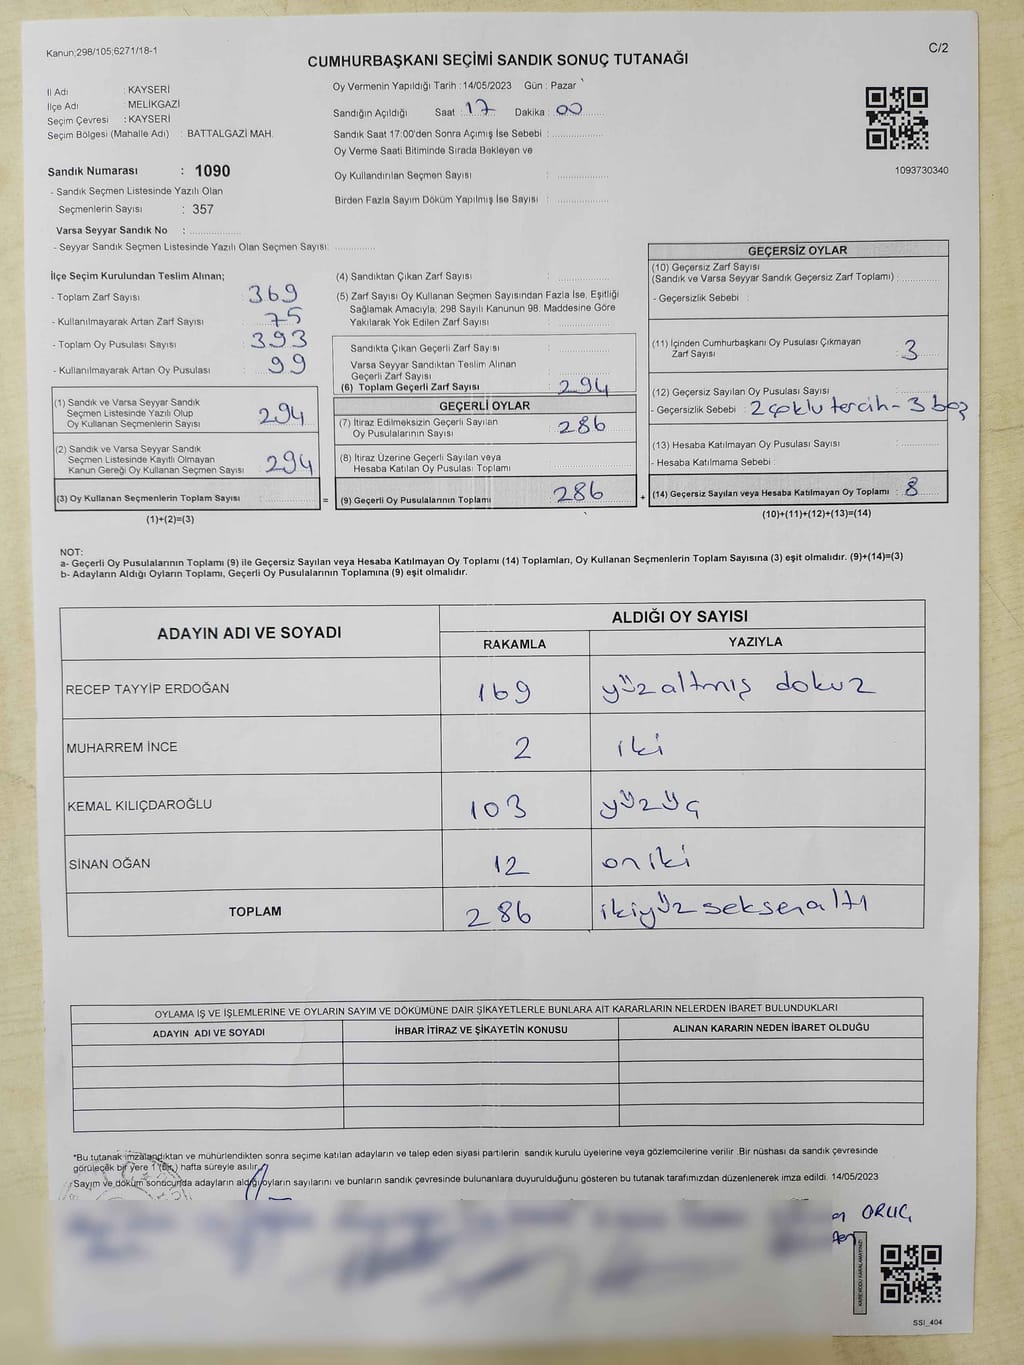 Kanun;298/105;6271/18-1
C/2
CUMHURBAŞKANI SEÇİMİ SANDIK SONUÇ TUTANAĞI
İl Adı : KAYSERİ
İlçe Adı : MELİKGAZİ
Seçim Çevresi : KAYSERİ
Seçim Bölgesi (Mahalle Adı) : BATTALGAZİ MAH.
Sandık Numarası : 1090
- Sandık Seçmen Listesinde Yazılı Olan
Seçmenlerin Sayısı : 357
Varsa Seyyar Sandık No :
- Seyyar Sandık Seçmen Listesinde Yazılı Olan Seçmen Sayısı:
Oy Vermenin Yapıldığı Tarih : 14/05/2023 Gün : Pazar
Sandığın Açıldığı Saat : 17 Dakika : 00
Sandık Saat 17:00'den Sonra Açımış İse Sebebi :
Oy Verme Saati Bitiminde Sırada Bekleyen ve
Oy Kullandırılan Seçmen Sayısı :
Birden Fazla Sayım Döküm Yapılmış İse Sayısı :
1093730340
İlçe Seçim Kurulundan Teslim Alınan;
- Toplam Zarf Sayısı : 369
- Kullanılmayarak Artan Zarf Sayısı : 75
- Toplam Oy Pusulası Sayısı : 393
- Kullanılmayarak Artan Oy Pusulası : 99
(1) Sandık ve Varsa Seyyar Sandık
Seçmen Listesinde Yazılı Olup
Oy Kullanan Seçmenlerin Sayısı : 294
(2) Sandık ve Varsa Seyyar Sandık
Seçmen Listesinde Kayıtlı Olmayan
Kanun Gereği Oy Kullanan Seçmen Sayısı : 294
(3) Oy Kullanan Seçmenlerin Toplam Sayısı :
=
(1)+(2)=(3)
(4) Sandıktan Çıkan Zarf Sayısı :
(5) Zarf Sayısı Oy Kullanan Seçmen Sayısından Fazla İse, Eşitliği
Sağlamak Amacıyla; 298 Sayılı Kanunun 98. Maddesine Göre
Yakılarak Yok Edilen Zarf Sayısı :
Sandıkta Çıkan Geçerli Zarf Sayısı :
Varsa Seyyar Sandıktan Teslim Alınan
Geçerli Zarf Sayısı :
(6) Toplam Geçerli Zarf Sayısı : 294
GEÇERLİ OYLAR
(7) İtiraz Edilmeksizin Geçerli Sayılan
Oy Pusulalarının Sayısı : 286
(8) İtiraz Üzerine Geçerli Sayılan veya
Hesaba Katılan Oy Pusulası Toplamı :
(9) Geçerli Oy Pusulalarının Toplamı : 286
+
GEÇERSİZ OYLAR
(10) Geçersiz Zarf Sayısı
(Sandık ve Varsa Seyyar Sandık Geçersiz Zarf Toplamı) :
- Geçersizlik Sebebi :
(11) İçinden Cumhurbaşkanı Oy Pusulası Çıkmayan
Zarf Sayısı : 3
(12) Geçersiz Sayılan Oy Pusulası Sayısı :
- Geçersizlik Sebebi : 2 çoklu tercih - 3 boş
(13) Hesaba Katılmayan Oy Pusulası Sayısı :
- Hesaba Katılmama Sebebi :
(14) Geçersiz Sayılan veya Hesaba Katılmayan Oy Toplamı : 8
(10)+(11)+(12)+(13)=(14)
NOT:
a- Geçerli Oy Pusulalarının Toplamı (9) ile Geçersiz Sayılan veya Hesaba Katılmayan Oy Toplamı (14) Toplamları, Oy Kullanan Seçmenlerin Toplam Sayısına (3) eşit olmalıdır. (9)+(14)=(3)
b- Adayların Aldığı Oyların Toplamı, Geçerli Oy Pusulalarının Toplamına (9) eşit olmalıdır.
ADAYIN ADI VE SOYADI
ALDIĞI OY SAYISI
RAKAMLA YAZIYLA
RECEP TAYYİP ERDOĞAN 169 yüz altmış dokuz
MUHARREM İNCE 2 iki
KEMAL KILIÇDAROĞLU 103 yüz üç
SİNAN OĞAN 12 on iki
TOPLAM 286 ikiyüz seksen altı
OYLAMA İŞ VE İŞLEMLERİNE VE OYLARIN SAYIM VE DÖKÜMÜNE DAİR ŞİKAYETLERLE BUNLARA AİT KARARLARIN NELERDEN İBARET BULUNDUKLARI
ADAYIN ADI VE SOYADI İHBAR İTİRAZ VE ŞİKAYETİN KONUSU ALINAN KARARIN NEDEN İBARET OLDUĞU
*Bu tutanak imzalandıktan ve mühürlendikten sonra seçime katılan adayların ve talep eden siyasi partilerin sandık kurulu üyelerine veya gözlemcilerine verilir. Bir nüshası da sandık çevresinde
görülecek bir yere 1 (Bir) hafta süreyle asılır.
Sayım ve döküm sonucunda adayların aldığı oyların sayılarını ve bunların sandık çevresinde bulunanlara duyurulduğunu gösteren bu tutanak tarafımızdan düzenlenerek imza edildi. 14/05/2023
ORUÇ
SSİ_404